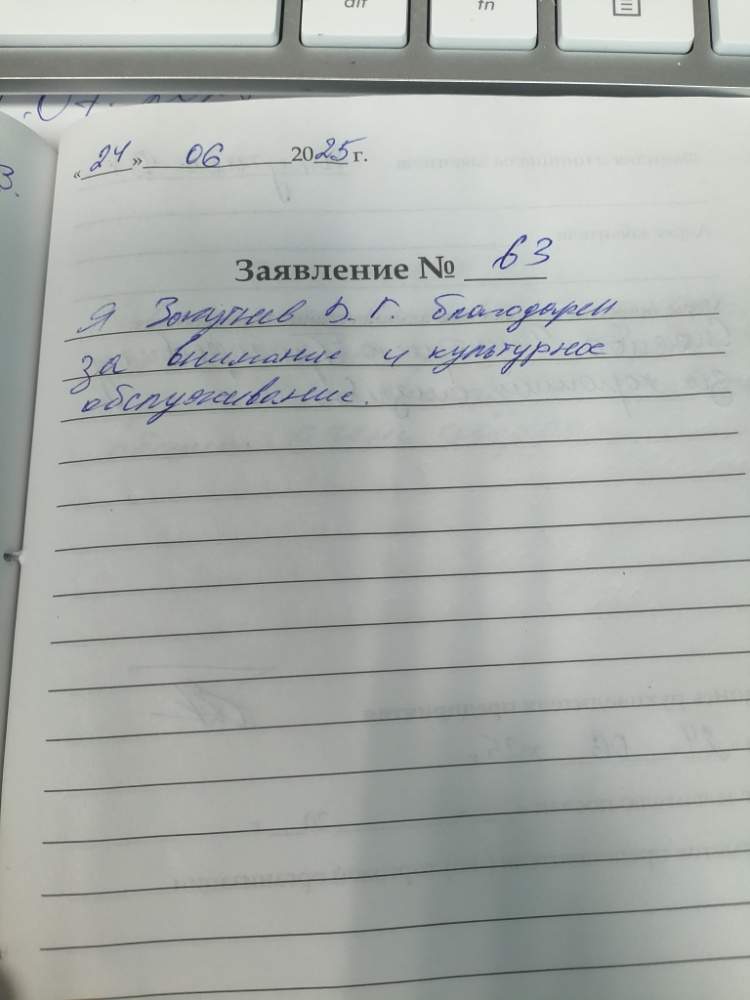 alt
fn
«24» 06 2025 г.
Заявление № 63
Я Закутнев В. Г. благодарен
за внимание и культурное
обслуживание.